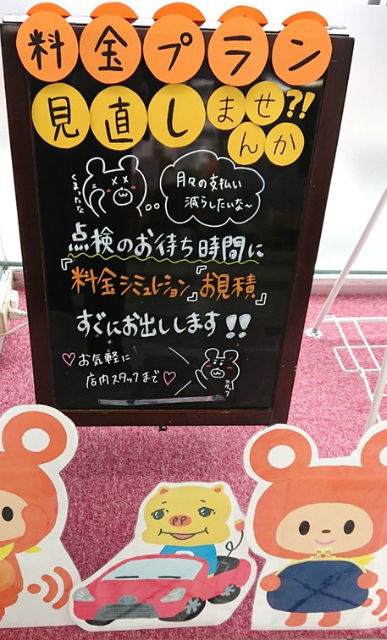 料金プラン
見直しませんか?!
こまったな
月々の支払い
減らしたいな~
点検のお待ち時間に
『料金シミュレション』『お見積』
すぐにお出しします!!
♡お気軽に
店内スタッフまで♡